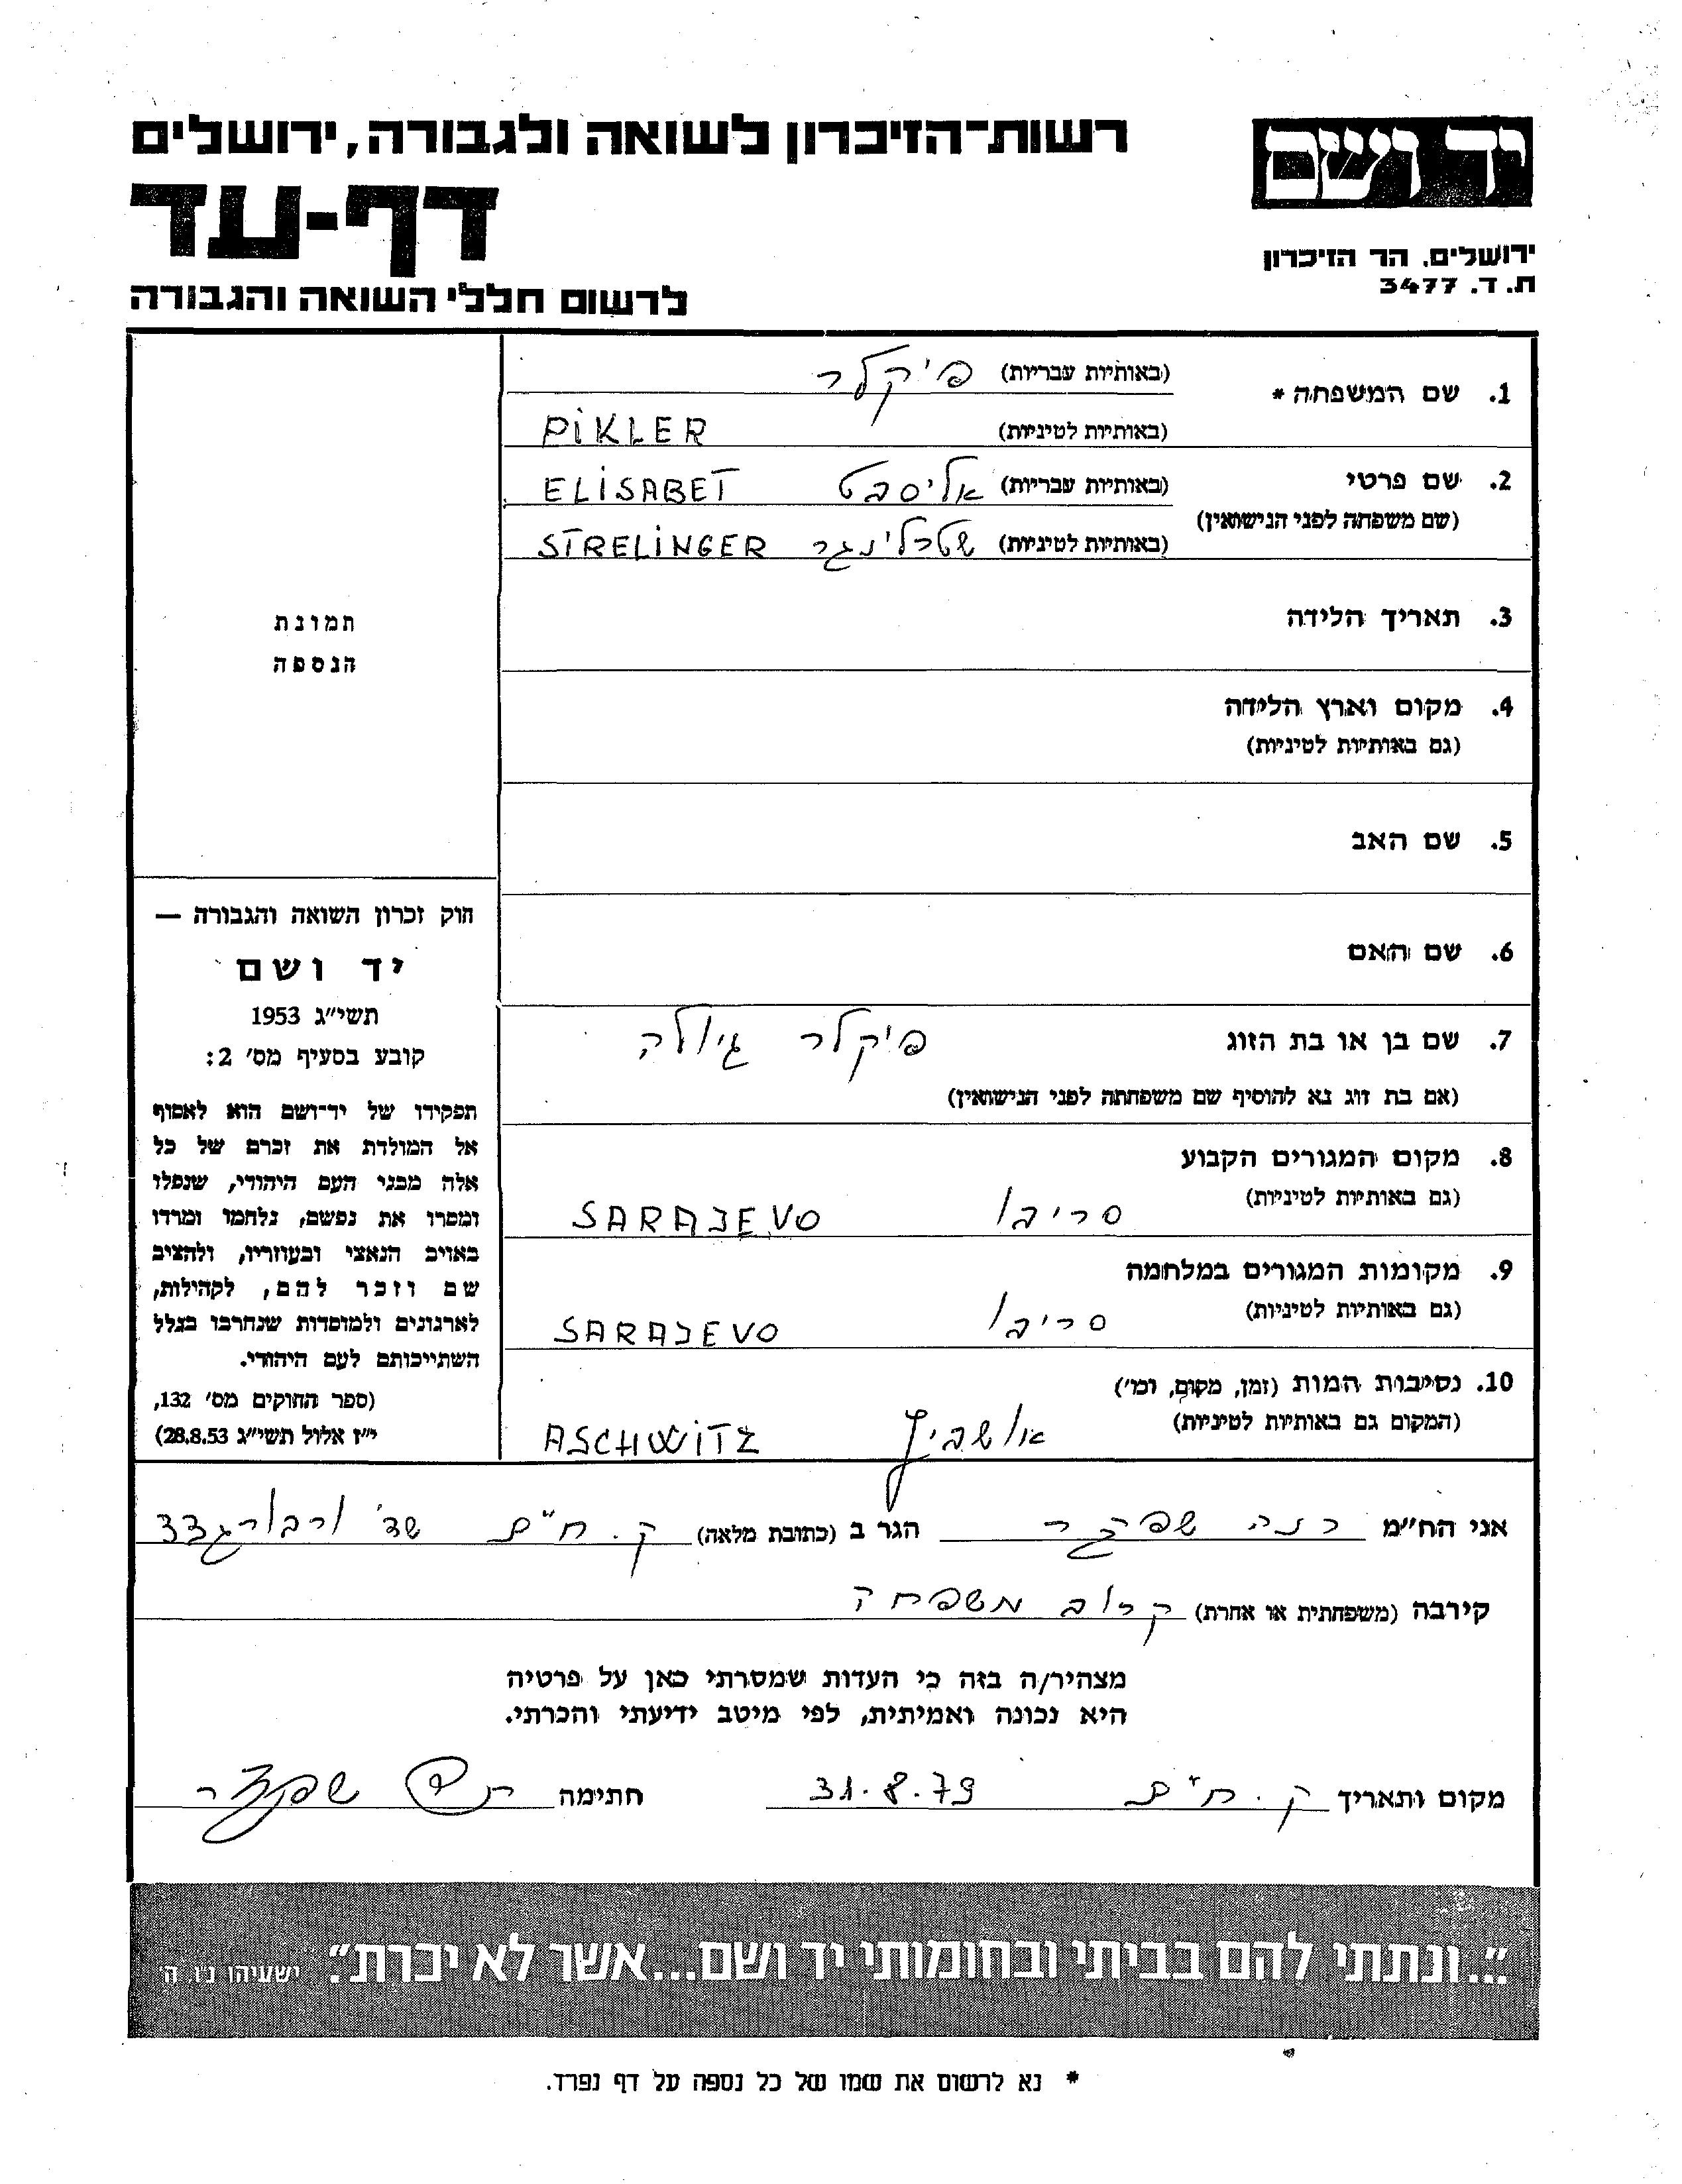 רשות-הזיכרון לשואה ולגבורה, ירושלים
דף-עד
לרשום חללי השואה והגבורה
יד ושם
ירושלים, הר הזיכרון
ת.ד. 3477
1. שם המשפחה * (באותיות עבריות) פיקלר
(באותיות לטיניות) PIKLER
2. שם פרטי (באותיות עבריות) אליסבט ELISABET
(שם משפחה לפני הנישואין) (באותיות לטיניות) שטרלינגר STRELINGER
3. תאריך הלידה
4. מקום וארץ הלידה
(גם באותיות לטיניות)
5. שם האב
6. שם האם
7. שם בן או בת הזוג פיקלר גיולה
(אם בת זוג נא להוסיף שם משפחתה לפני הנישואין)
8. מקום המגורים הקבוע
(גם באותיות לטיניות) סריבו SARAJEVO
9. מקומות המגורים במלחמה
(גם באותיות לטיניות) סריבו SARAJEVO
10. נסיבות המות (זמן, מקום, וכו')
(המקום גם באותיות לטיניות) אושביץ ASCHWITZ
תמונת
הנספה
חוק זכרון השואה והגבורה —
יד ושם
תשי"ג 1953
קובע בסעיף מס' 2:
תפקידו של יד-ושם הוא לאסוף
אל המולדת את זכרם של כל
אלה מבני העם היהודי, שנפלו
ומסרו את נפשם, נלחמו ומרדו
באויב הנאצי ובעוזריו, ולהציב
שם וזכר להם, לקהילות,
לארגונים ולמוסדות שנחרבו בגלל
השתייכותם לעם היהודי.
(ספר החוקים מס' 132,
י"ז אלול תשי"ג 28.8.53)
אני הח"מ רנה הגר ב (כתובת מלאה) ק. ח"ם שד'
קירבה (משפחתית או אחרת) קרוב משפחה
מצהיר/ה בזה כי העדות שמסרתי כאן על פרטיה
היא נכונה ואמיתית, לפי מיטב ידיעתי והכרתי.
מקום ותאריך ק. ח"ם 31.8.79 חתימה
"...ונתתי להם בביתי ובחומותי יד ושם...אשר לא יכרת". ישעיהו נ"ו, ה'
* נא לרשום את שמו של כל נספה על דף נפרד.